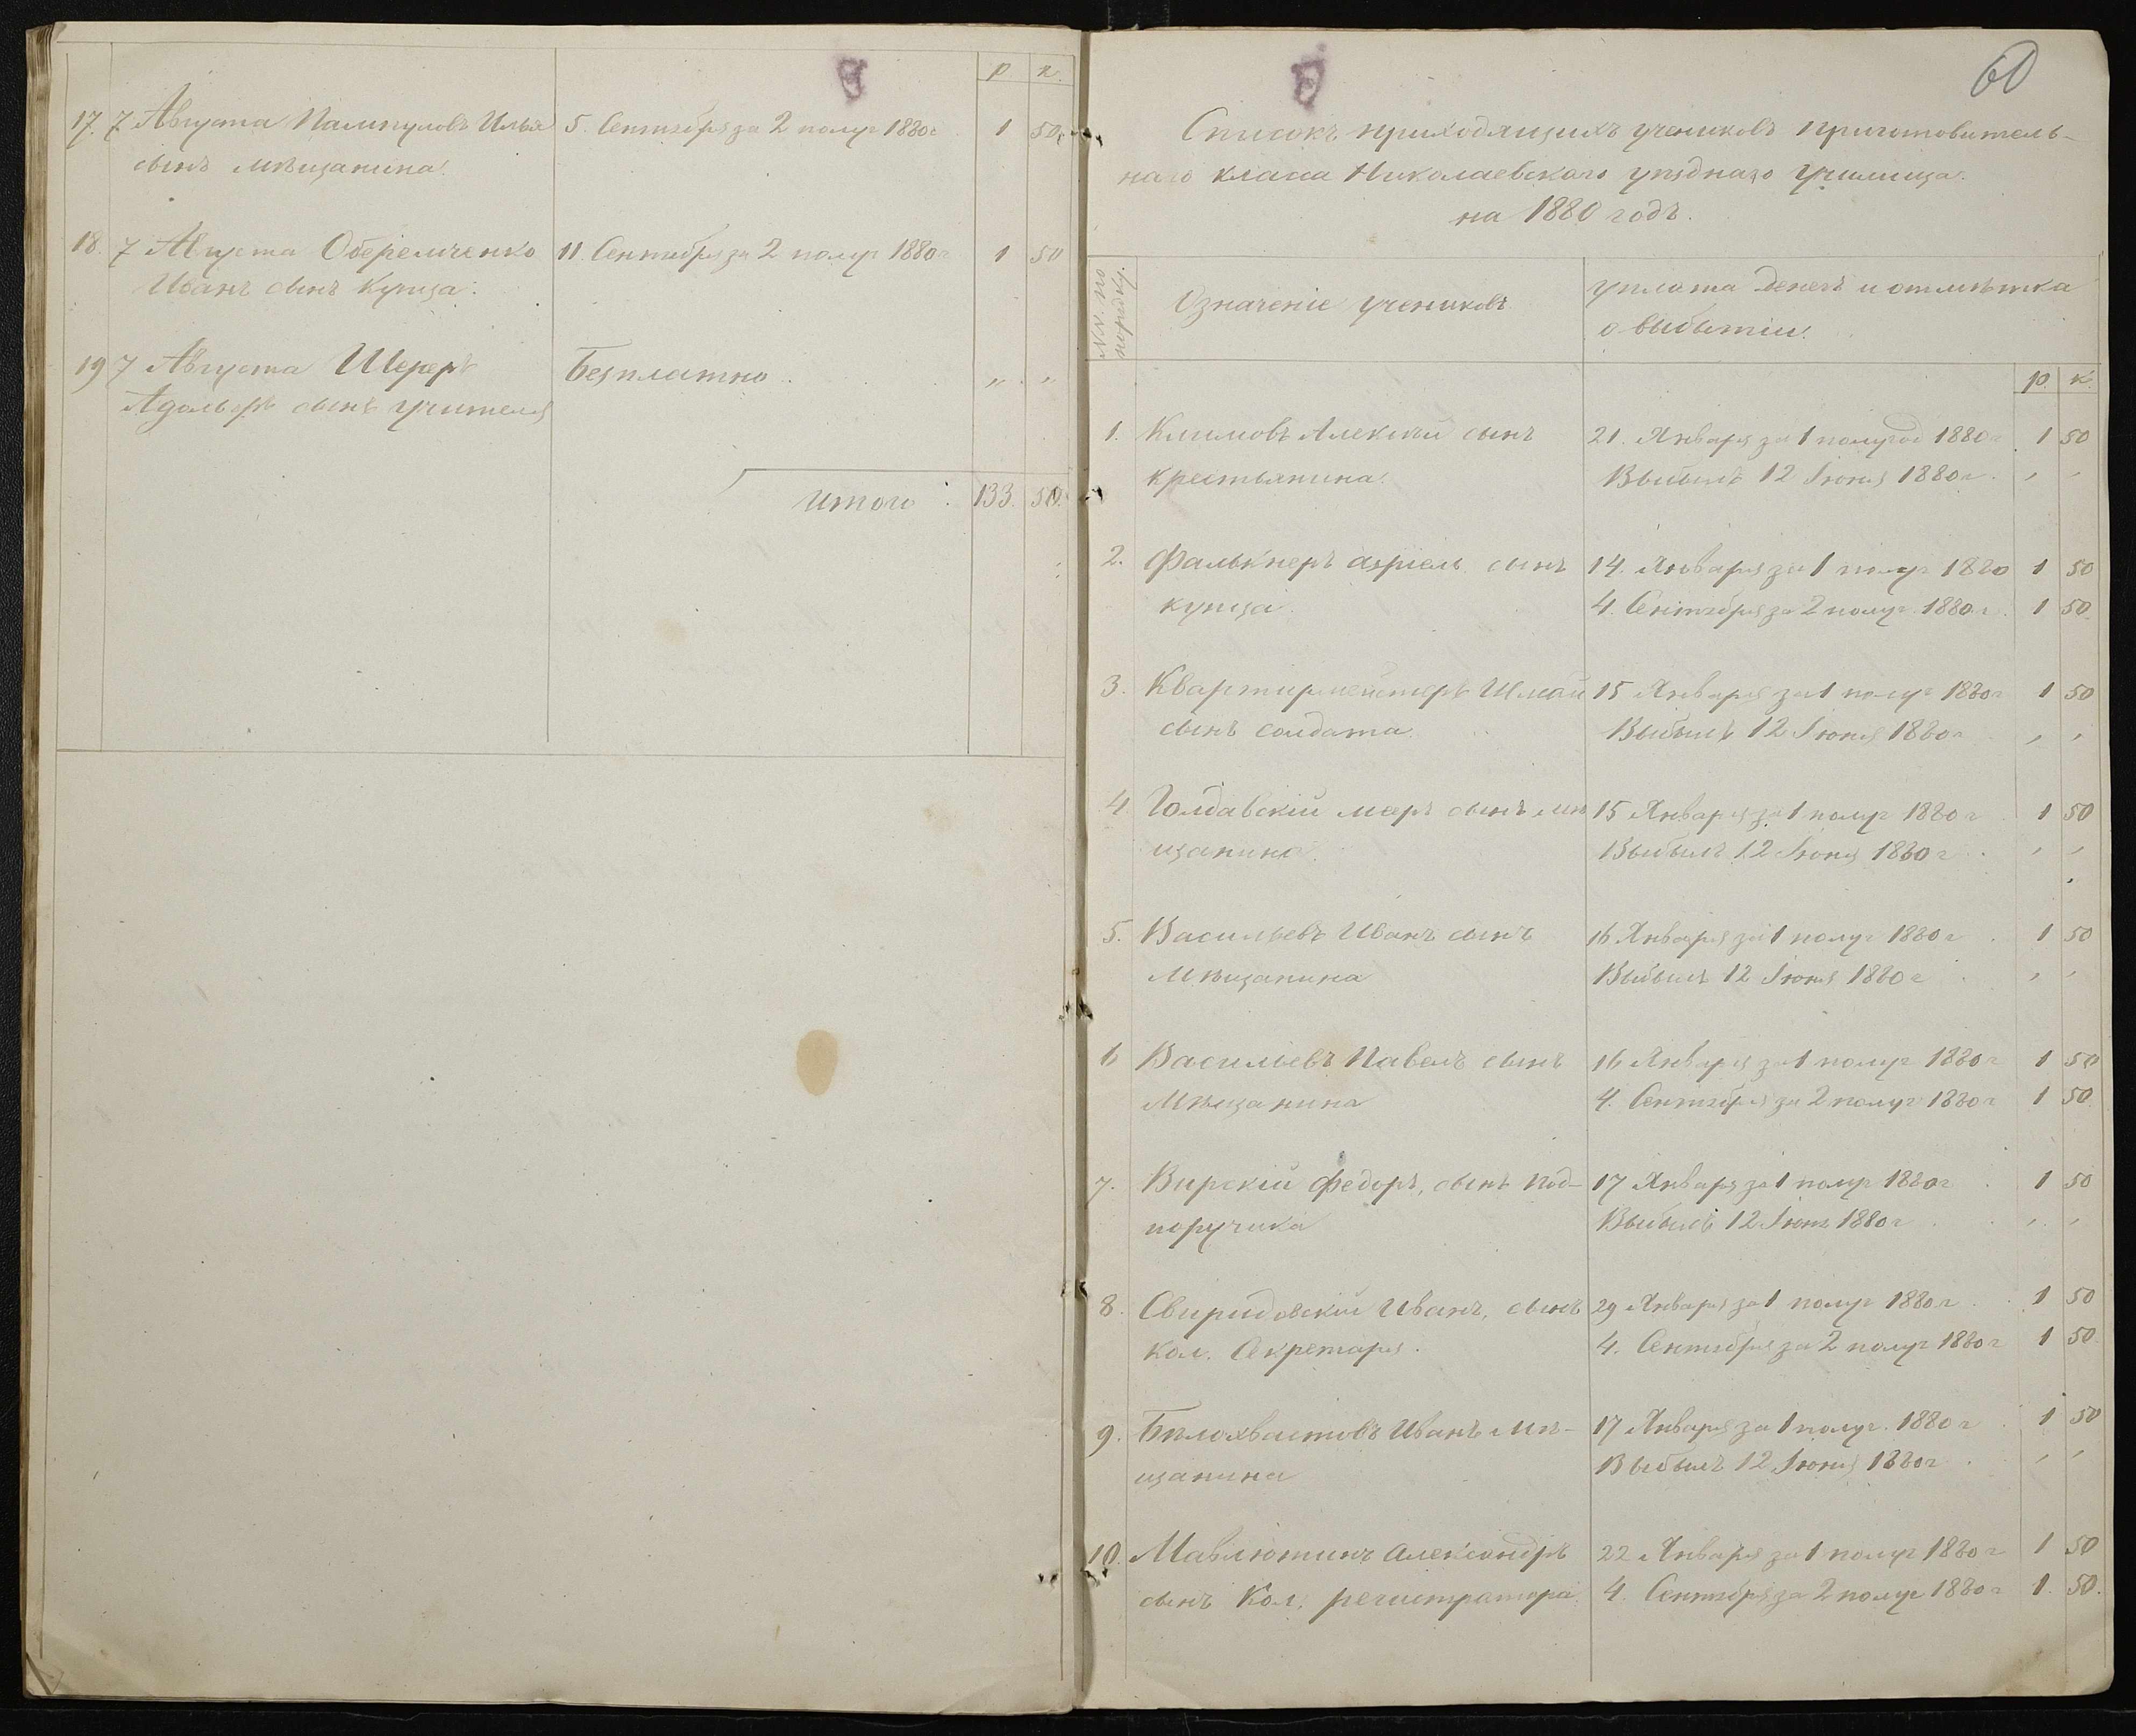 р. к.
17. 7 Августа Палипуловъ Илья 5. Сентября за 2 полуг 1880 г. 1 50
сынъ мѣщанина.
18. 7 Августа Оберемченко 11 Сентября за 2 полуг 1880 г 1 50
Иванъ сынъ Купца.
19 7 Августа Шереръ Безплатно. „ „
Адольфъ сынъ учителя
Итого 133. 50.
60
Списокъ приходящихъ учениковъ приготовитель-
наго класса Николаевскаго уѣзднаго Училища.
на 1880 годъ.
NN. по порядку.
Означеніе учениковъ
уплата денегъ и отмѣтка
о выбытіи.
р. к.
1. Климовъ Алексѣй сынъ 21. Января за 1 полугод 1880 г 1 50
крестьянина. Выбылъ 12 Іюня 1880 г. , ,
2. Фалькнеръ Азріель сынъ 14. Января за 1 полуг 1880 1 50
купца. 4. Сентября за 2 полуг. 1880 г. 1 50.
3. Квартирмейстеръ Шмай 15 Января за 1 полуг 1880 г 1 50
сынъ солдата. Выбылъ 12 Іюня 1880 г , ,
4 Голдавскій Мееръ сынъ мѣ 15 Января за 1 полуг 1880 г 1 50
щанина. Выбылъ 12 Іюня 1880 г. , ,
5. Васильевъ Иванъ сынъ 16 Января за 1 полуг 1880 г. 1 50
Мѣщанина Выбылъ 12 Іюня 1880 г. , ,
6 Васильевъ Павелъ сынъ 16 Января за 1 полуг 1880 г 1 50
Мѣщанина 4. Сентября за 2 полуг 1880 г 1 50.
7. Вирскій Федоръ, сынъ Под- 17 Января за 1 полуг 1880 г. 1 50
поручика Выбылъ 12 Іюня 1880 г. , ,
8. Свиридовскій Иванъ, сынъ 29 Января за 1 полуг 1880 г. 1 50
Кол. Секретаря. 4. Сентября за 2 полуг 1880 г 1 50.
9. Бѣлохвастовъ Иванъ мѣ- 17 Января за 1 полуг. 1880 г. 1 50
щанина Выбылъ 12 Іюня 1880 г. , ,
10. Мавлютинъ Александръ 22 Января за 1 полуг 1880 г 1 50
сынъ Кол. регистратора. 4. Сентября за 2 полуг 1880 г 1. 50.